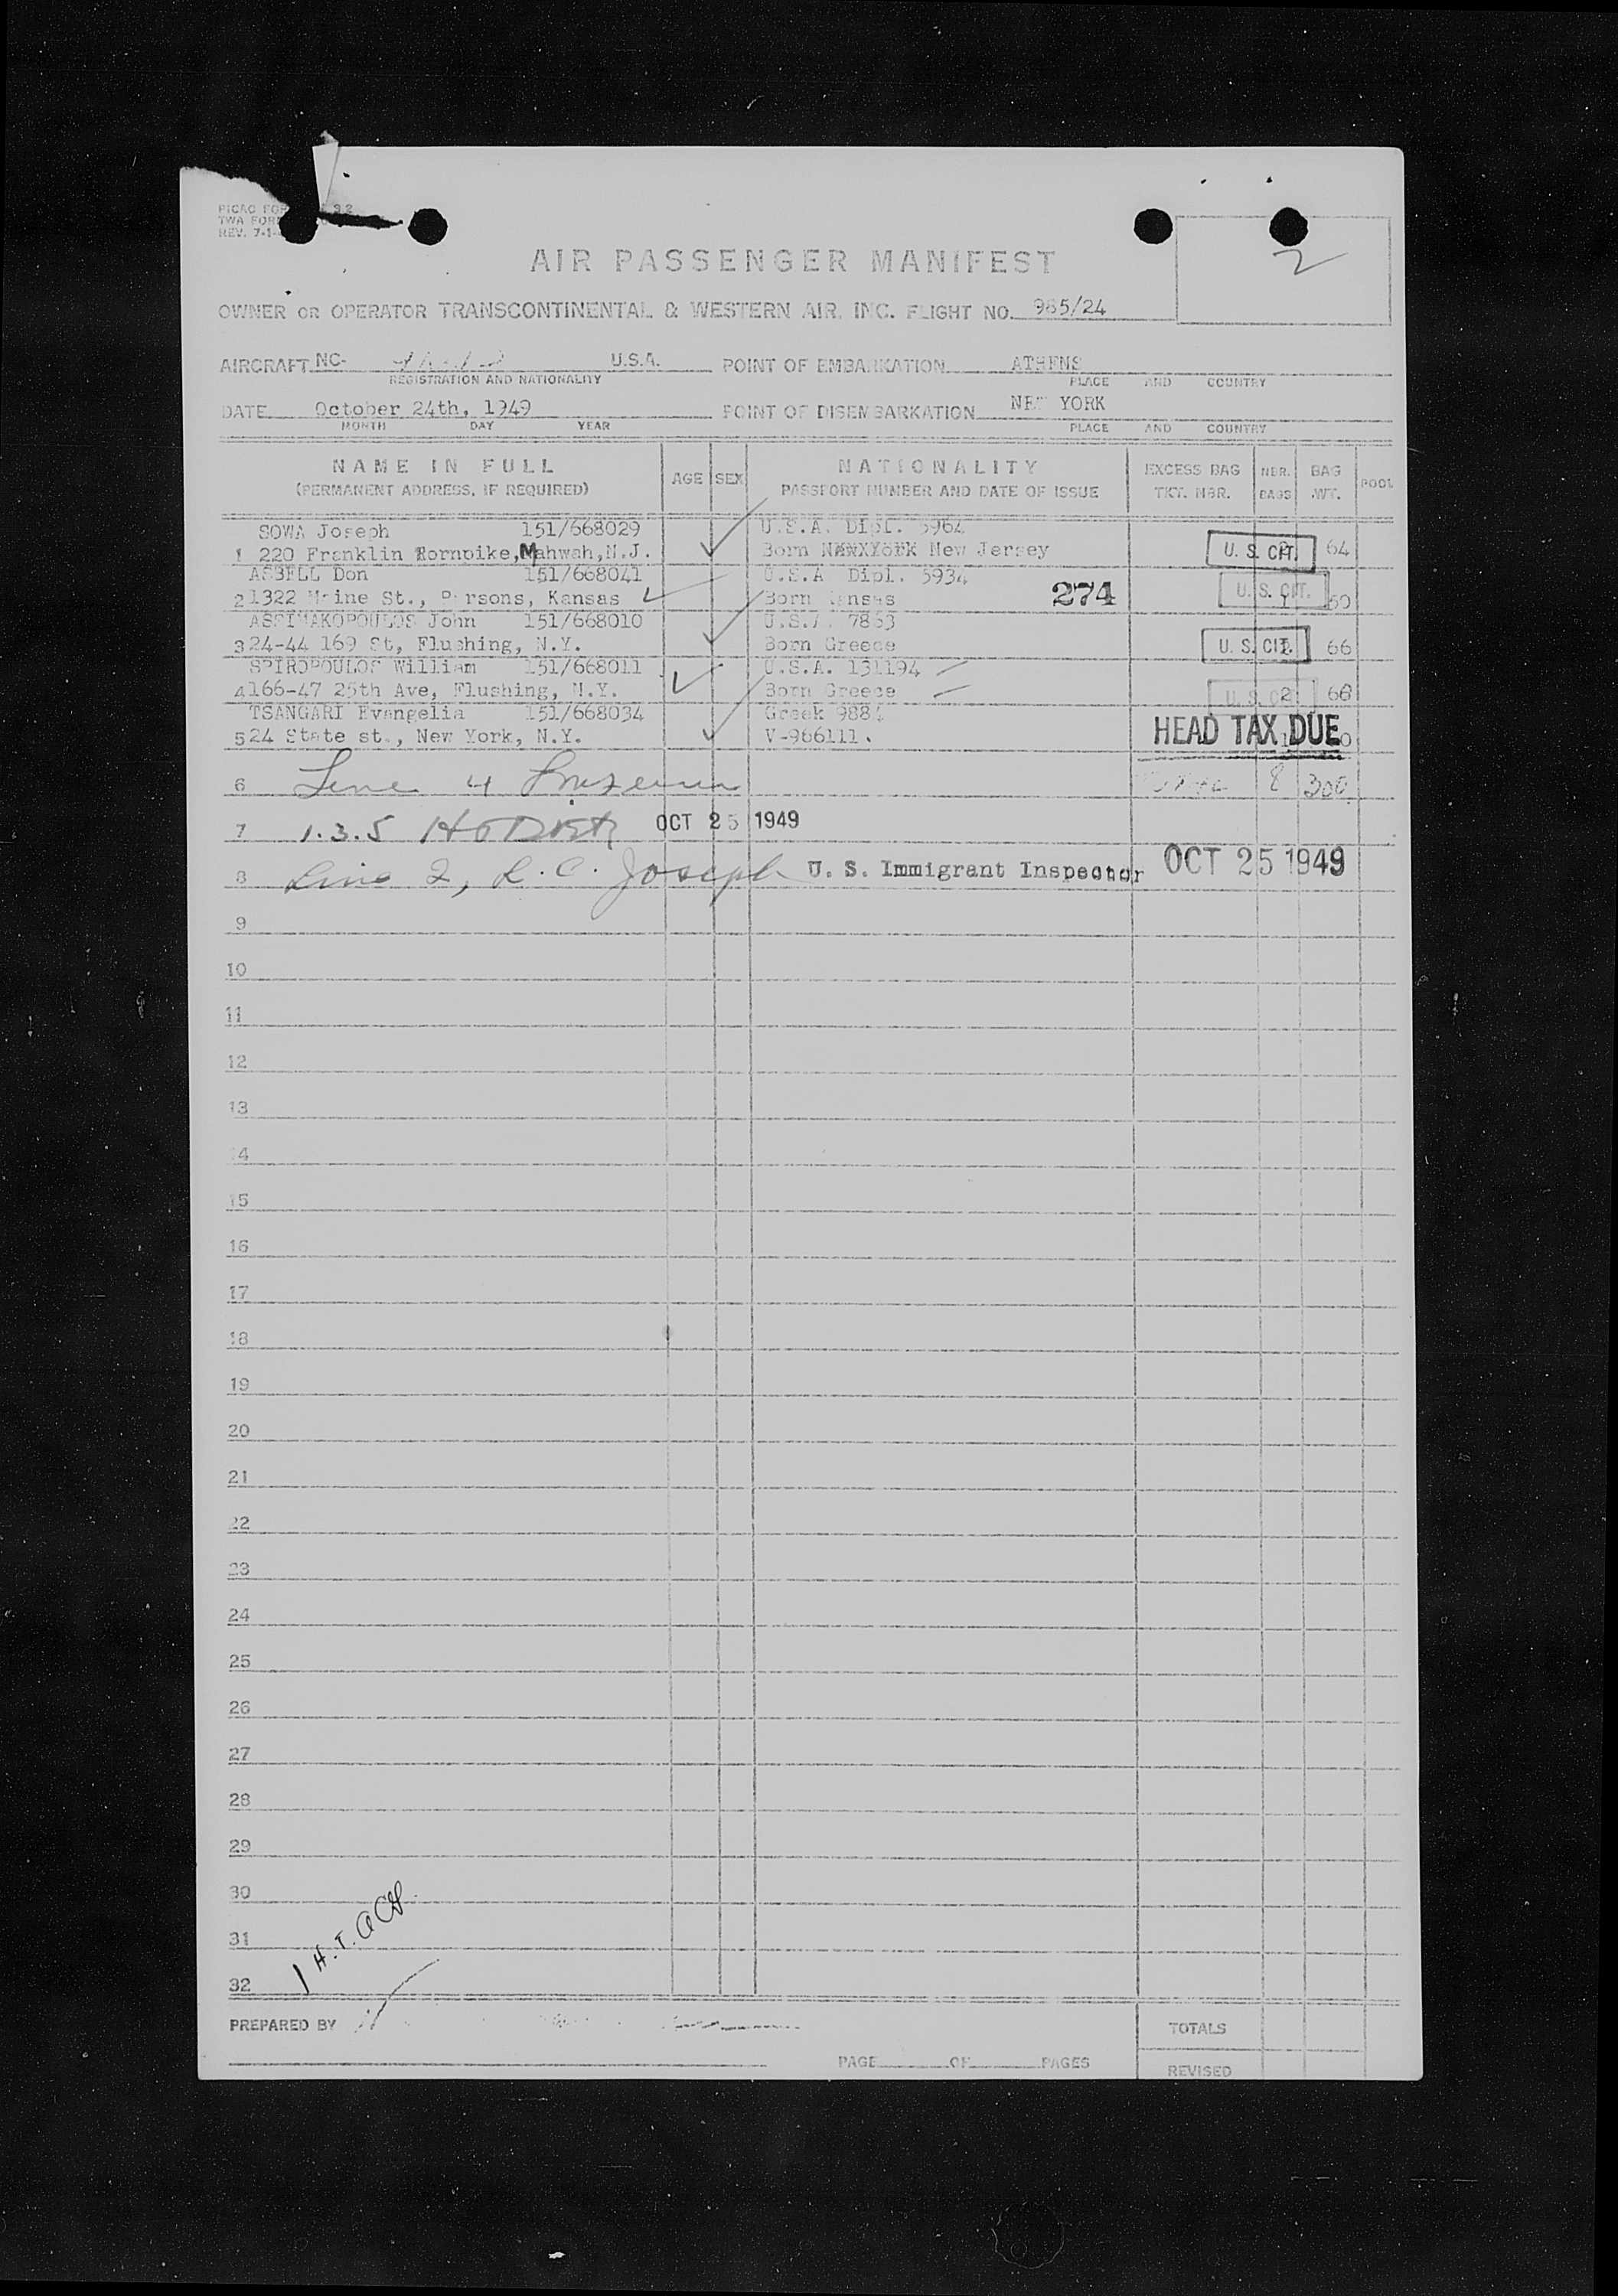 REV. 7-1-
2
AIR PASSENGER MANIFEST
OWNER OR OPERATOR TRANSCONTINENTAL & WESTERN AIR, INC. FLIGHT NO. 965/24
AIRCRAFT NC- U.S.A. POINT OF EMBARKATION ATHENS
REGISTRATION AND NATIONALITY PLACE AND COUNTRY
DATE October 24th, 1949 POINT OF DISEMBARKATION NEW YORK
MONTH DAY YEAR PLACE AND COUNTRY
NAME IN FULL AGE SEX NATIONALITY EXCESS BAG NBR. BAG POOL
(PERMANENT ADDRESS, IF REQUIRED) PASSPORT NUMBER AND DATE OF ISSUE TKT. NBR. BAGS WT.
SOWA Joseph 151/668029 U.S.A. Dipl. 5964
1 220 Franklin Rornpike, Mahwah, N.J. Born New Jersey U. S. CIT. 64
ASBELL Don 151/668041 U.S.A Dipl. 5934
2 1322 St., Parsons, Kansas Born Kansas 274 U. S. CIT. 1
ASSIMAKOPOULOS John 151/668010 U.S.A.
3 24-44 169 St, Flushing, N.Y. Born Greece U. S. CIT. 66
SPIROPOULOS William 151/668011 U.S.A. 131194
4 166-47 25th Ave, Flushing, N.Y. Born Greece U. S. CIT. 2
TSANGARI Evangelia 151/668034 Greek 9884
5 24 State st., New York, N.Y. V-966111. HEAD TAX DUE
6 Line 4 8 300
7 1.3.5 OCT 25 1949
8 Line 2, L. C. Joseph U. S. Immigrant Inspector OCT 25 1949
9
10
11
12
13
14
15
16
17
18
19
20
21
22
23
24
25
26
27
28
29
30
31
32
1 H.T.
PREPARED BY TOTALS
PAGE OF PAGES
REVISED